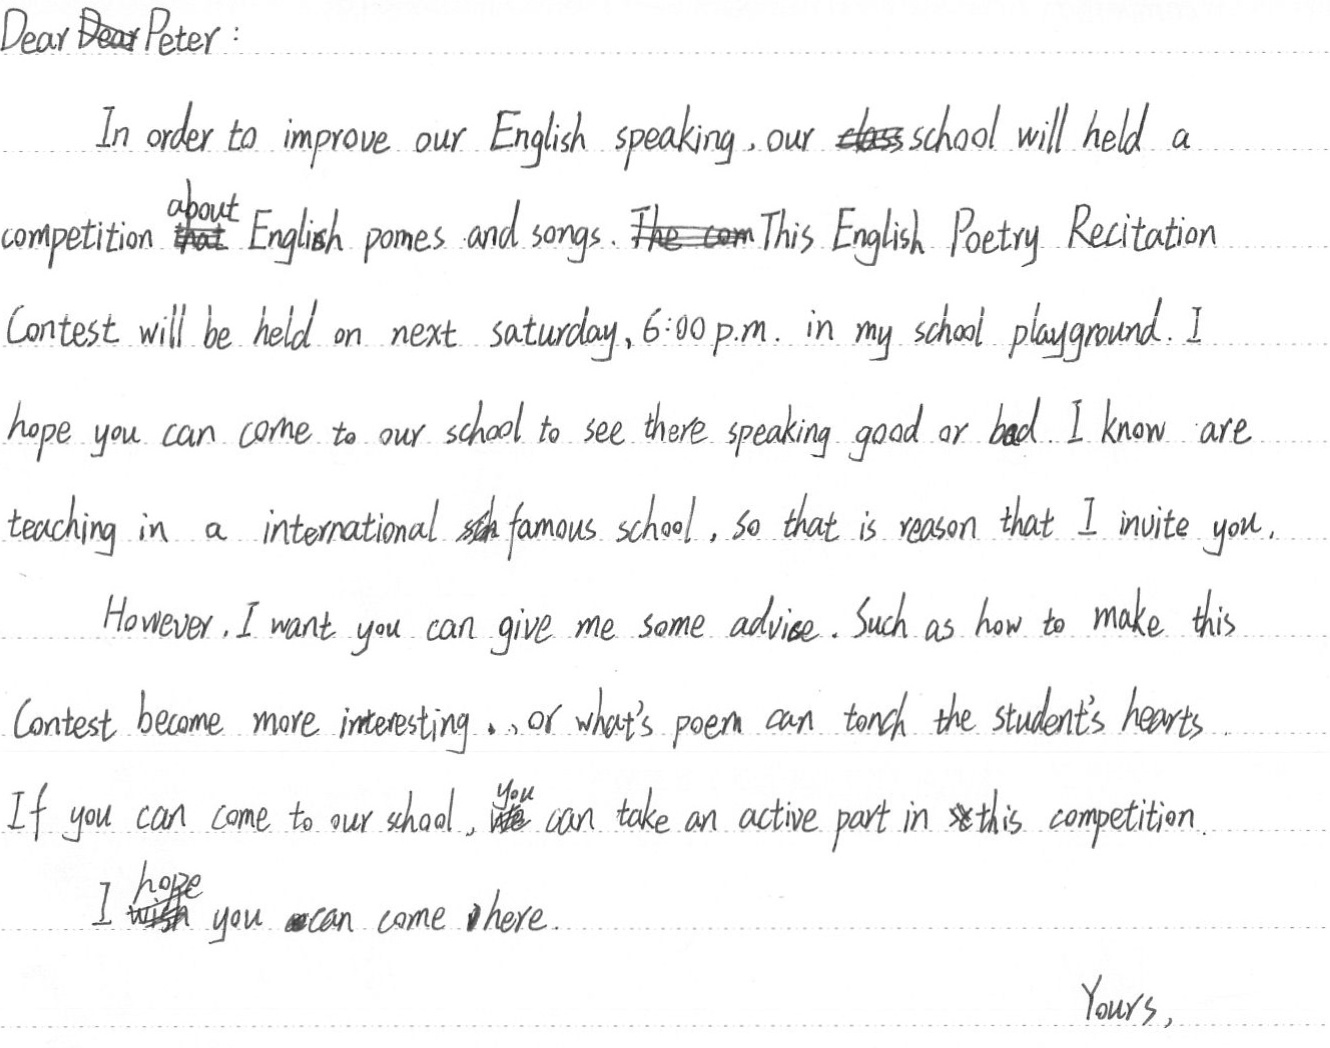 Dear Peter:
In order to improve our English speaking, our school will held a
competition about English pomes and songs. This English Poetry Recitation
Contest will be held on next saturday, 6:00 p.m. in my school playground. I
hope you can come to our school to see there speaking good or bad. I know are
teaching in a international famous school, so that is reason that I invite you.
However, I want you can give me some advice. Such as how to make this
Contest become more interesting., or what's poem can tonch the student's hearts.
If you can come to our school, you can take an active part in this competition.
I hope you can come here.
Yours,